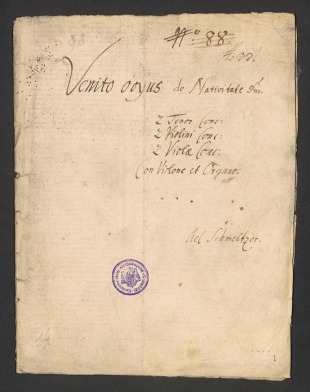 No: 88
Venito ocyus de Nativitate Dni.
2 Tenor Conc:
2 Violini Conc:
2 Viola Conc.
Con Violone et Organo.
del Schmeltzer.
1